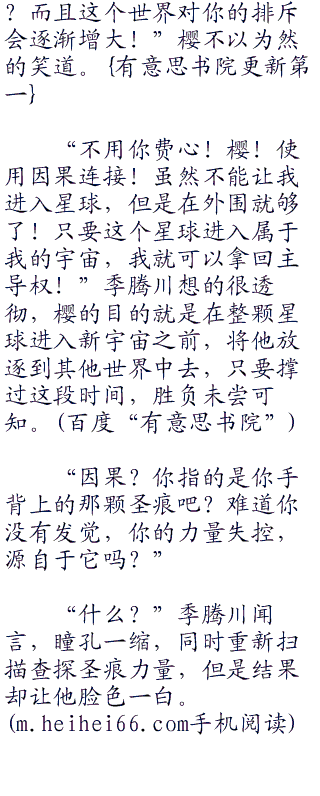 ？而且这个世界对你的排斥
会逐渐增大！”樱不以为然
的笑道。{有意思书院更新第
一}
“不用你费心！樱！使
用因果连接！虽然不能让我
进入星球，但是在外围就够
了！只要这个星球进入属于
我的宇宙，我就可以拿回主
导权！”季腾川想的很透
彻，樱的目的就是在整颗星
球进入新宇宙之前，将他放
逐到其他世界中去，只要撑
过这段时间，胜负未尝可
知。(百度“有意思书院”)
“因果？你指的是你手
背上的那颗圣痕吧？难道你
没有发觉，你的力量失控，
源自于它吗？”
“什么？”季腾川闻
言，瞳孔一缩，同时重新扫
描查探圣痕力量，但是结果
却让他脸色一白。
(m.heihei66.com手机阅读)